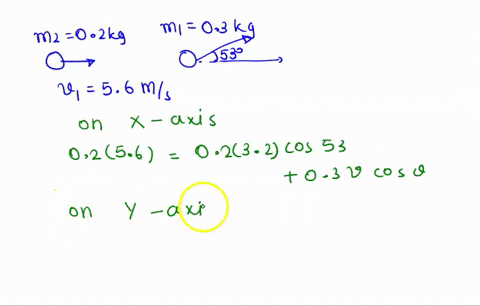 m2 = 0.2kg
m1 = 0.3 kg
53°
v1 = 5.6 m/s
on X-axis
0.2(5.6) = 0.2(3.2) cos 53
+ 0.3 v cos θ
on Y-axi